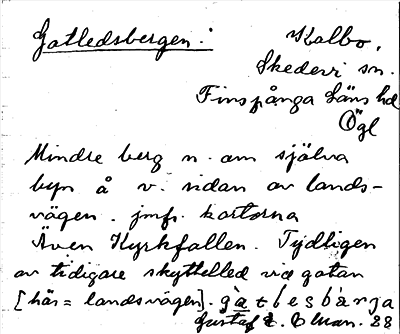 Gatledsbergen:
Kalbo,
Skedevi sn.
Finspånga läns hd
Ögl
Mindre berg n. om själva
byn å v. sidan av lands-
vägen. jmfr. kartorna
Även Kyrkfallen. Tydligen
av tidigare skyttelled vid gatan
[här = landsvägen]. gatlesbärja
Gustaf E. Ekman. 88